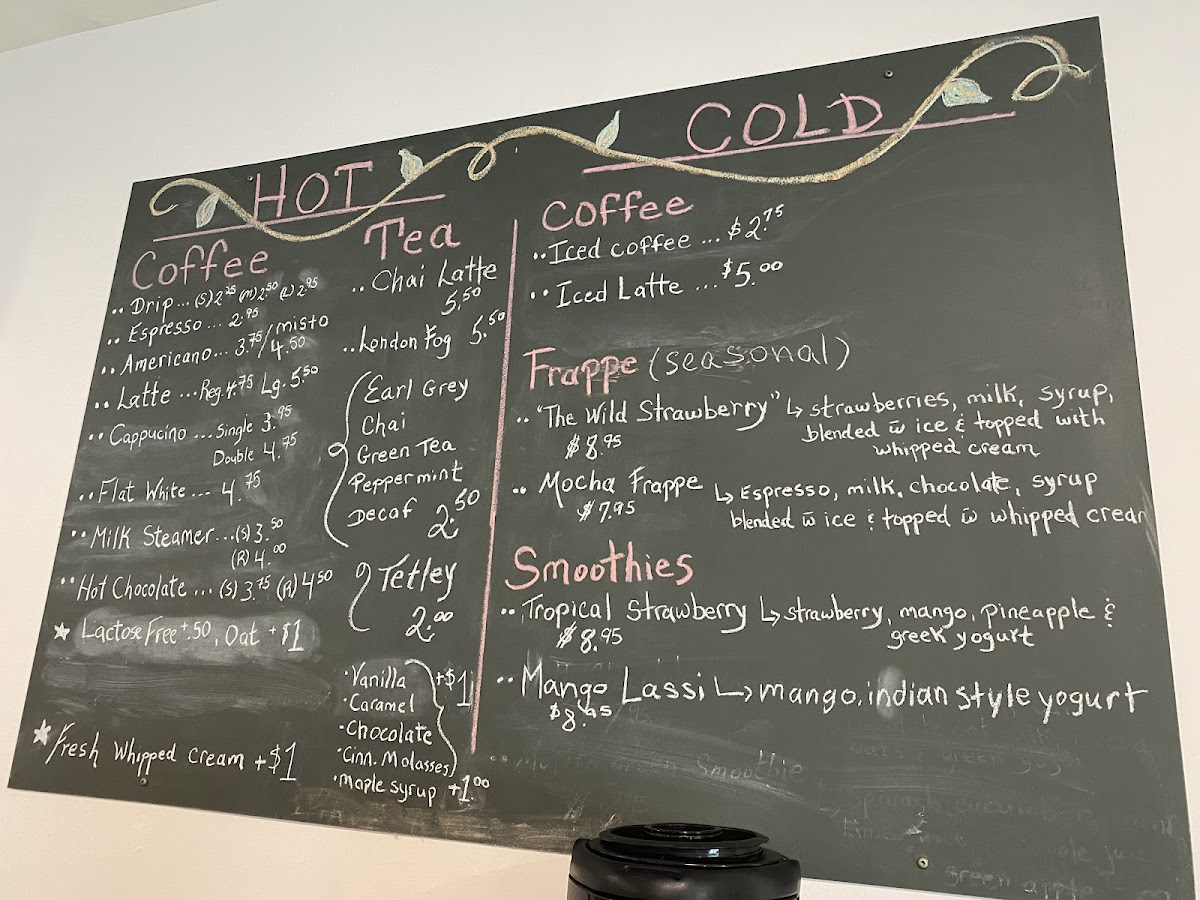 HOT
Coffee
·· Drip... (S) 2.25 (M) 2.50 (L) 2.95
·· Espresso... 2.95
·· Americano... 3.75/misto 4.50
·· Latte... Reg. 4.75 Lg. 5.50
·· Cappucino... Single 3.95
Double 4.75
·· Flat White... 4.75
·· Milk Steamer... (S) 3.50
(R) 4.00
·· Hot Chocolate... (S) 3.75 (R) 4.50
★ Lactose Free +.50, Oat +$1
★ Fresh Whipped Cream +$1
Tea
·· Chai Latte
5.50
·· London Fog 5.50
Earl Grey
Chai
Green Tea
Peppermint
Decaf 2.50
Tetley
2.00
·Vanilla +$1
·Caramel
·Chocolate
·Cinn. Molasses
·maple syrup +1.00
COLD
Coffee
·· Iced coffee... $2.75
·· Iced Latte... $5.00
Frappe (seasonal)
·· "The Wild Strawberry" ↳ strawberries, milk, syrup,
$8.95 blended w̄ ice & topped with
whipped cream
·· Mocha Frappe ↳ Espresso, milk, chocolate, syrup
$7.95 blended w̄ ice & topped w̄ whipped cream
Smoothies
·· Tropical Strawberry ↳ strawberry, mango, pineapple &
$8.95 greek yogurt
·· Mango Lassi ↳ mango, indian style yogurt
$8.95
Smoothie
green apple